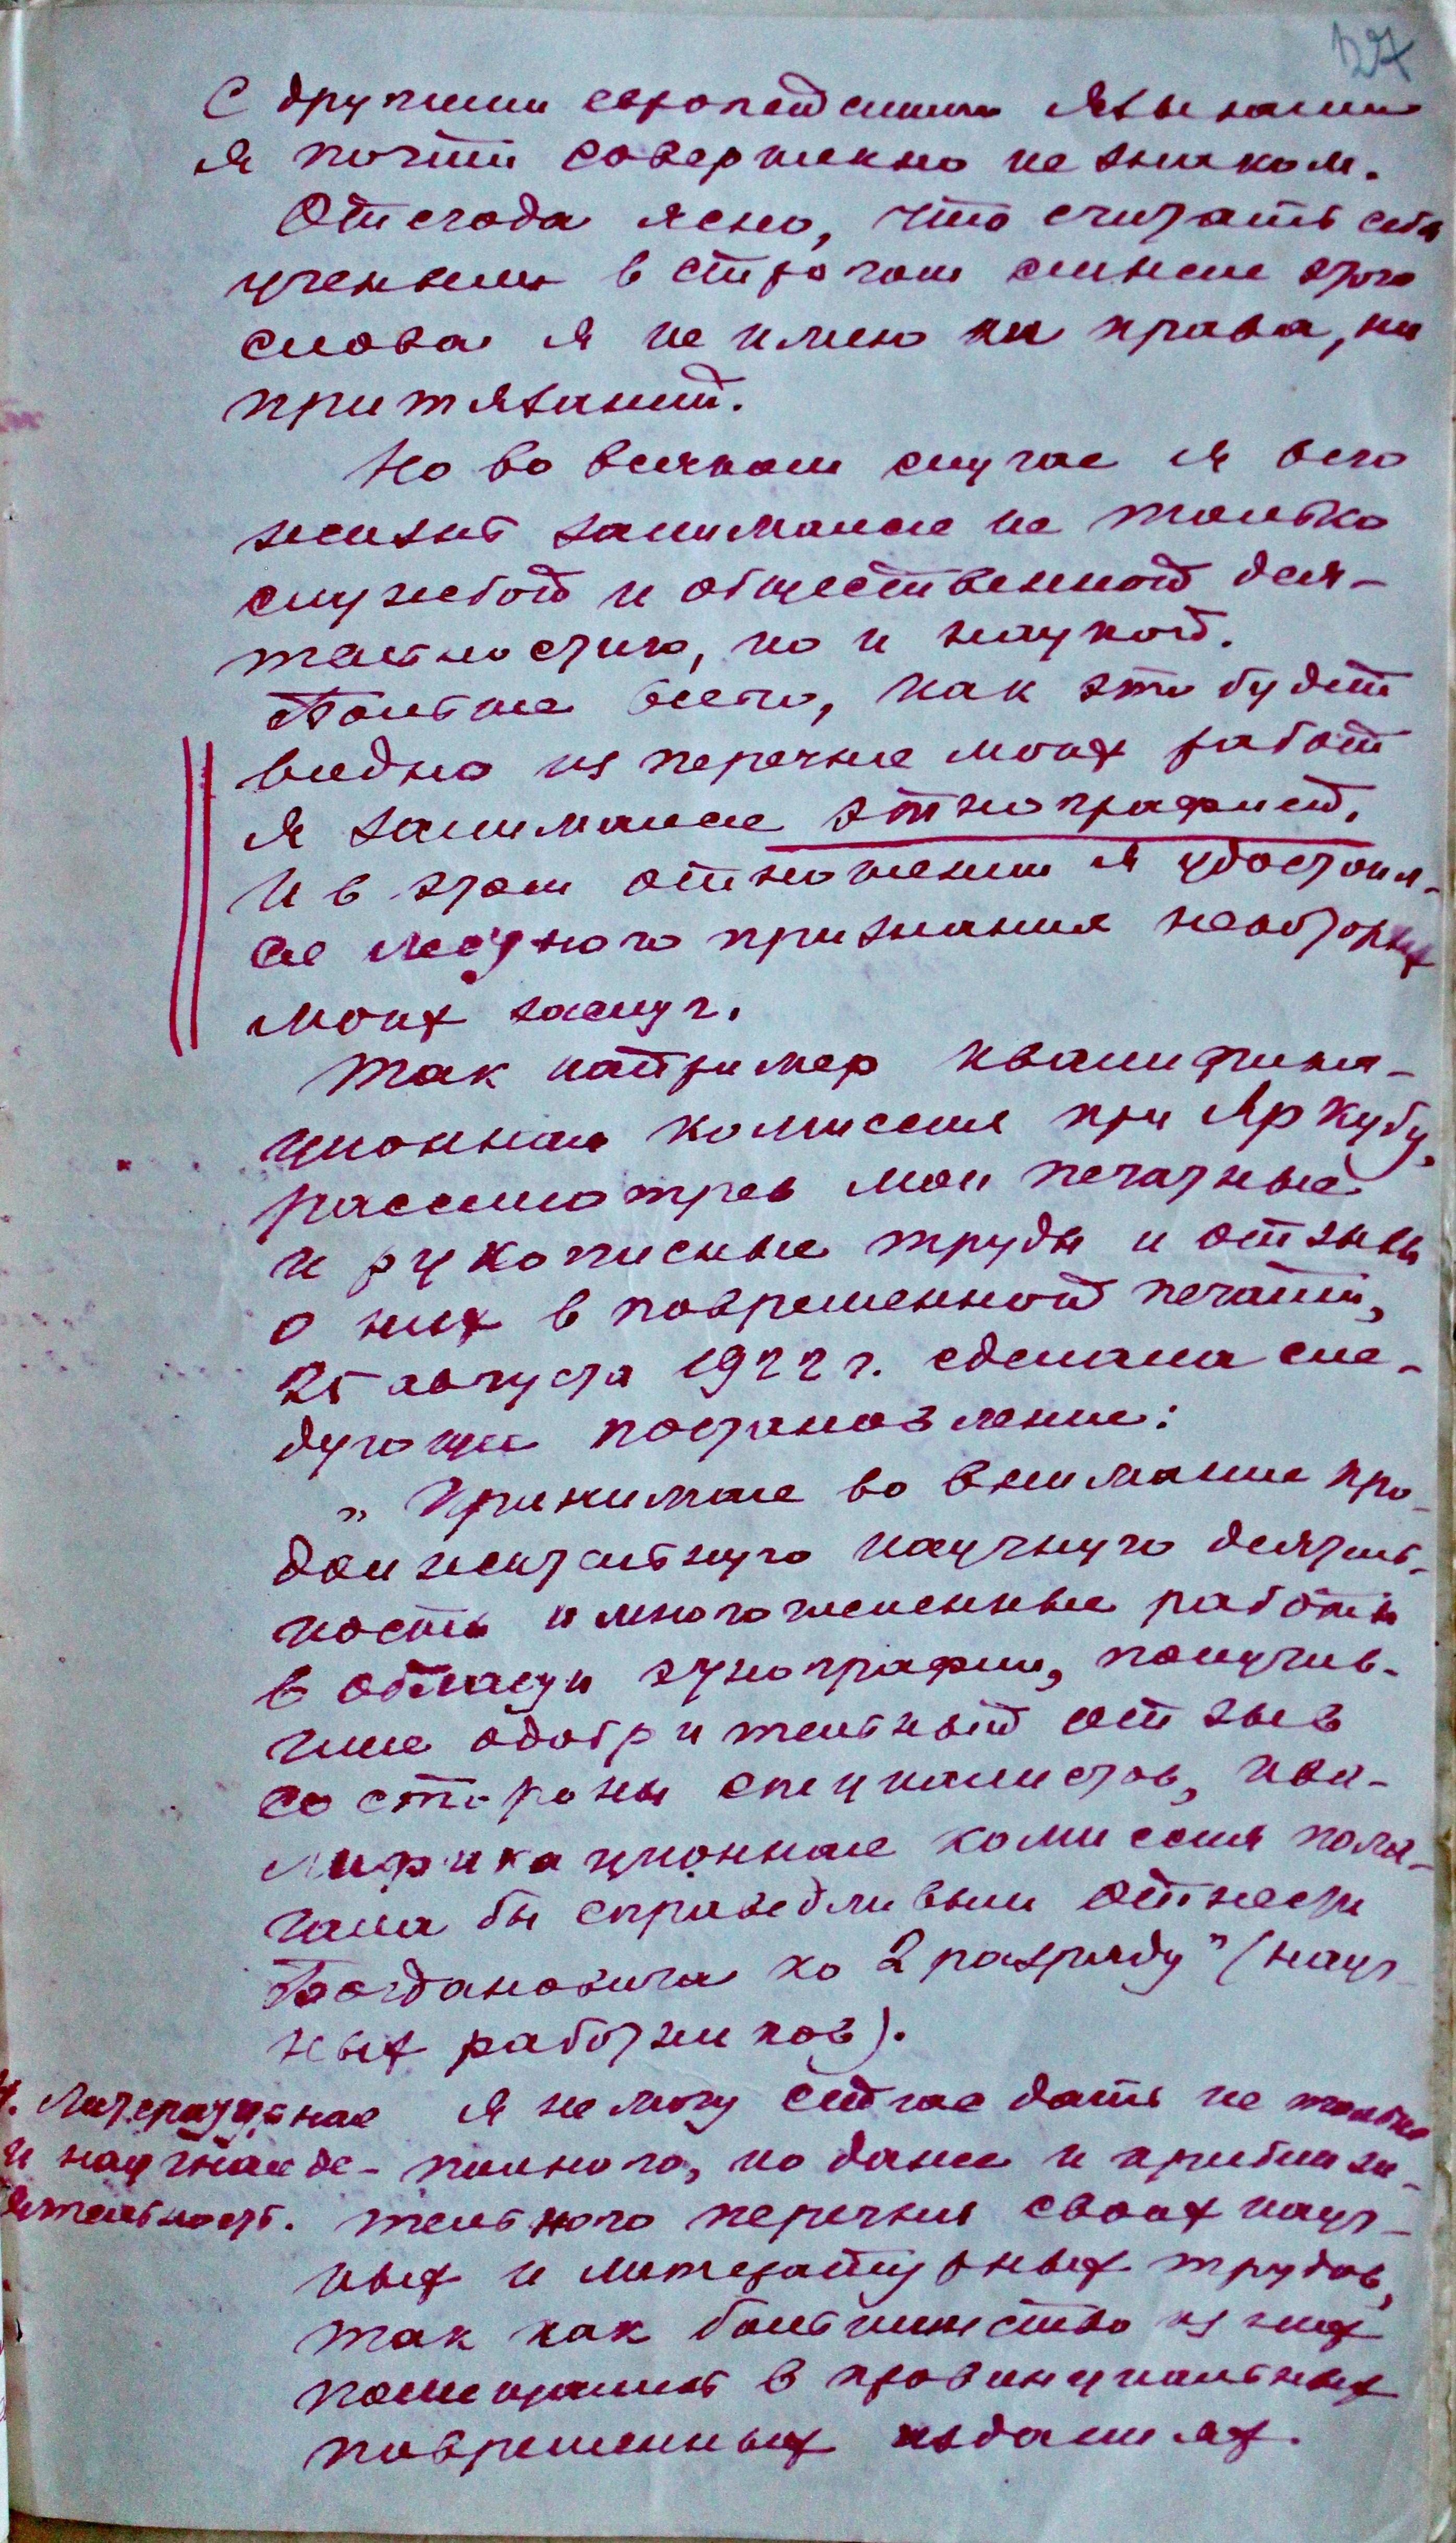 127
С другими европейскими языками
я почти совершенно не знаком.
Отсюда ясно, что считать себя
ученым в строгом смысле этого
слова я не имею ни права, ни
притязаний.
Но во всяком случае я всю
жизнь занимался не только
службой и общественной дея-
тельностью, но и наукой.
Больше всего, как это будет
видно из перечня моих работ
я занимался этнографией.
И в этом отношении я удостоил-
ся признания некоторых
моих заслуг.
Так например квалифика-
ционная комиссия при Яркубу,
рассмотрев мои печатные
и рукописные труды и отзывы
о них в повременной печати,
25 августа 1922 г. сделала сле-
дующее постановление:
„Принимая во внимание про-
должительную научную деятель-
ность и многочисленные работы
в области этнографии, получив-
шие одобрительный отзыв
со стороны специалистов, ква-
лификационная комиссия пола-
гала бы справедливым отнести
Богдановича ко 2 разряду" (науч-
ных работников).
4. Литературная
и научная де-
ятельность.
Я не могу сейчас дать не только
полного, но даже и приблизи-
тельного перечня своих науч-
ных и литературных трудов,
так как большинство из них
помещались в провинциальных
повременных изданиях.